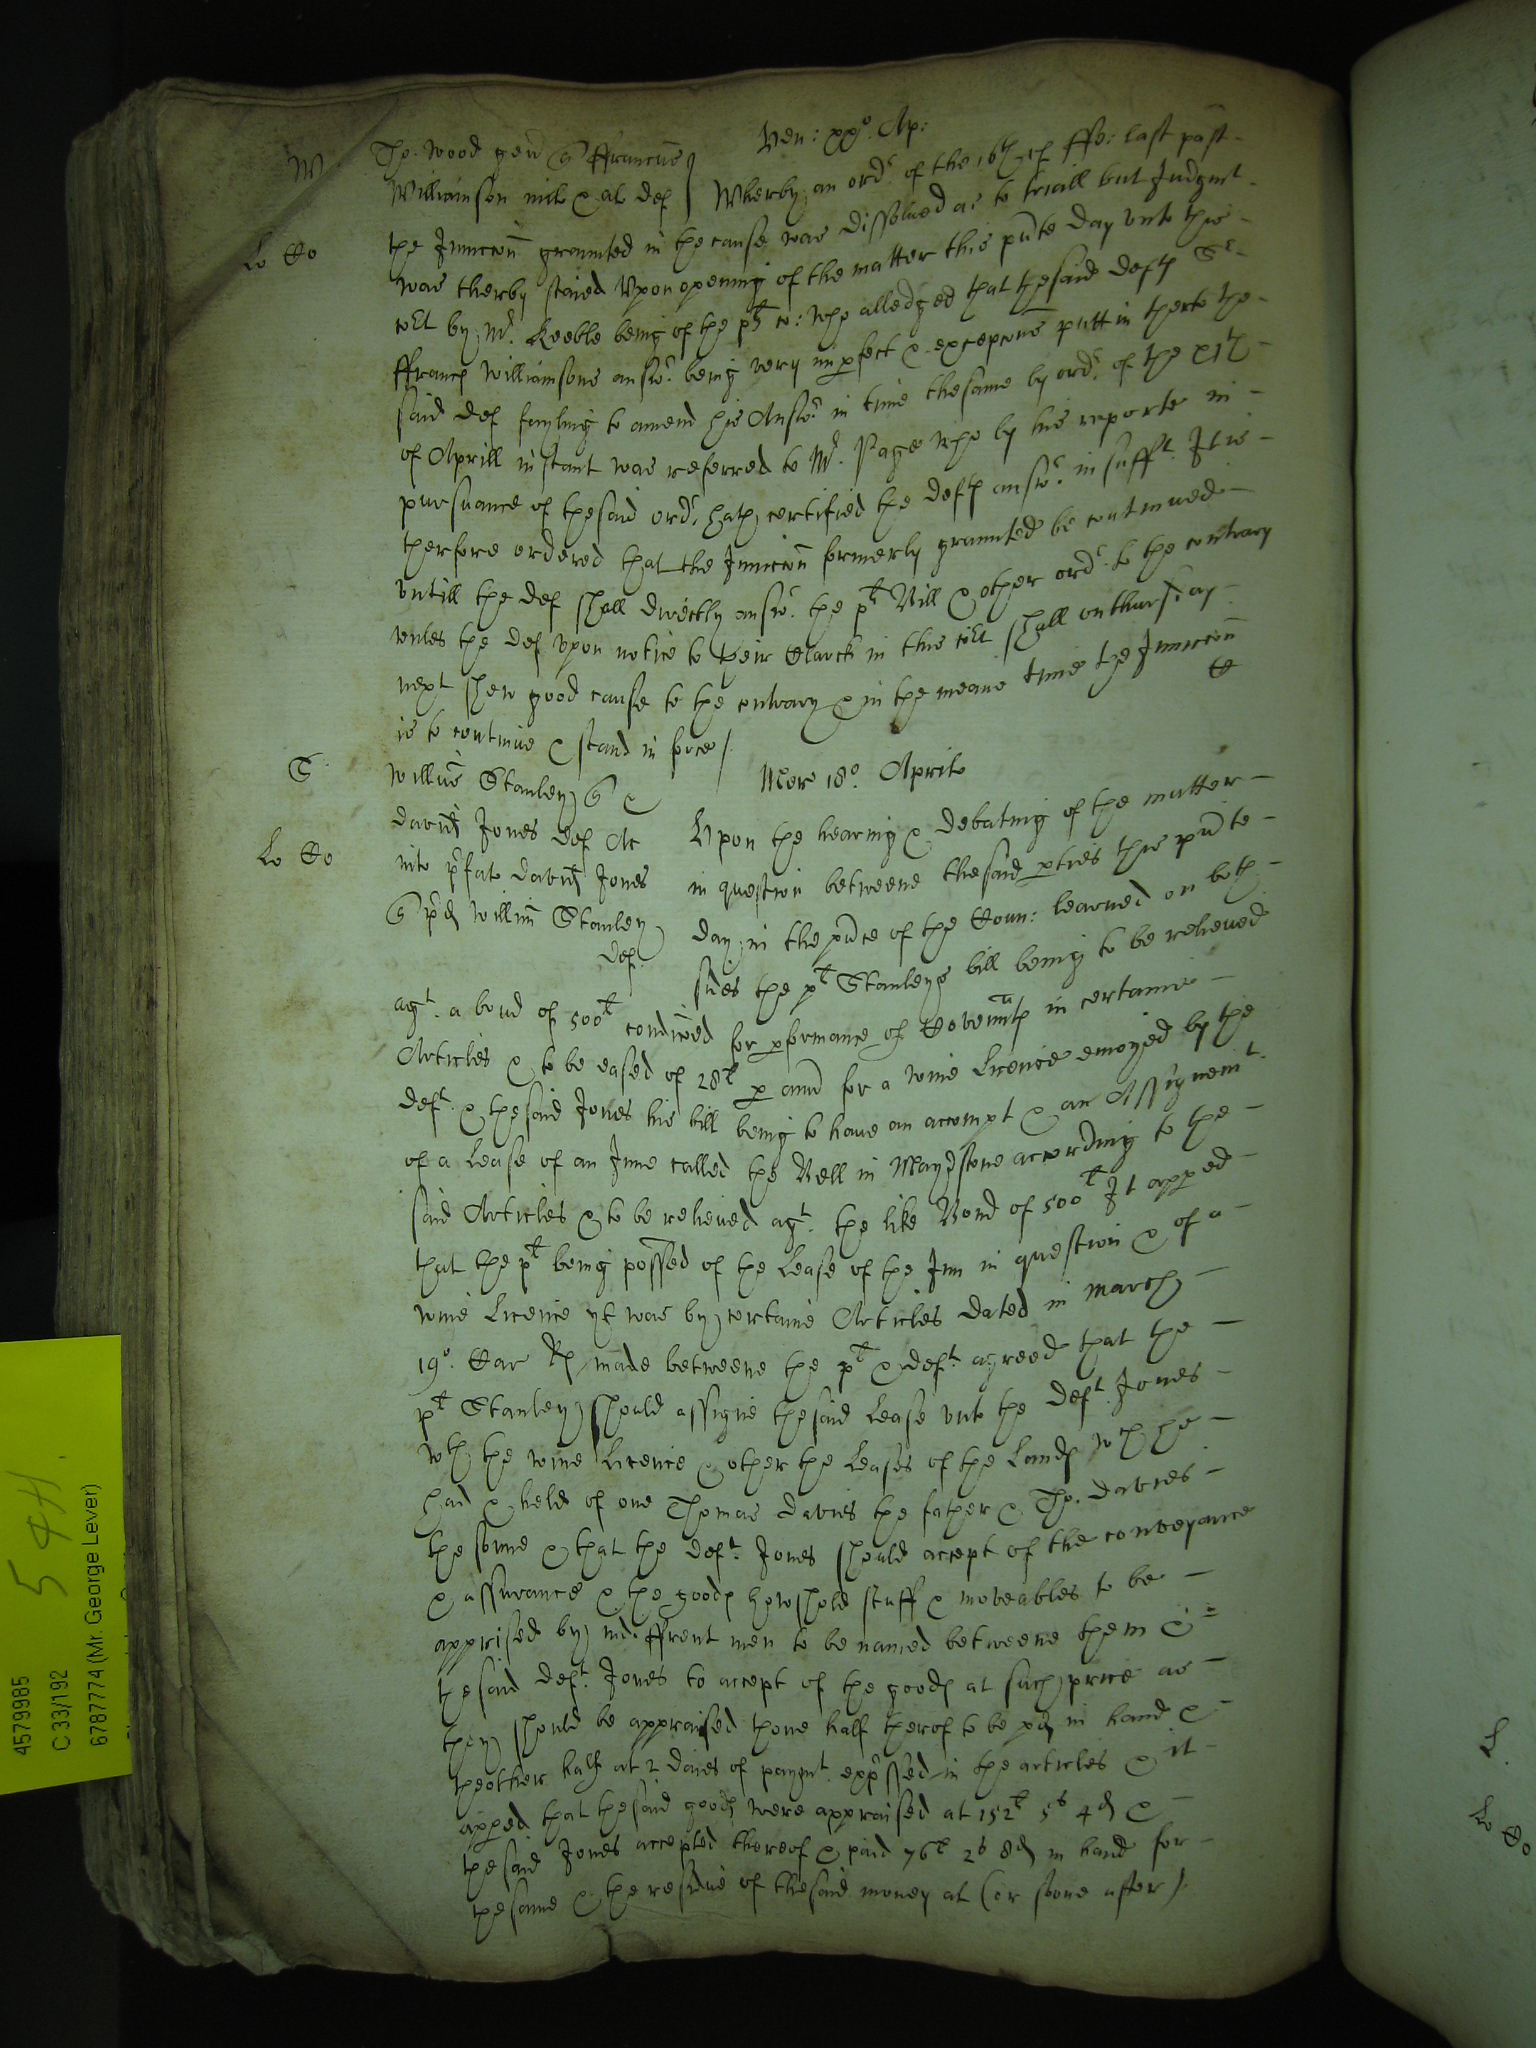 Ven: xxo. Ap:
W Tho. Wood gen q ffrancus
Williamson mil & al def Wherby an ordr. of the 16th of ffe: last past
Lo Co the Iniuccon graunted in the cause was dissolued as to triall but Judgmt.
was therby staied Vpon opening of the matter this pnte day vnto this
cort by Mr. Keeble being of the plts co: who alledged that the said deft Sr
ffrancis Williamsons answr. being very imperfect & excepcons putt in therto the
said def fayling to amend his Answr. in time the same by ordr. of the xith
of Aprill instant was referred to Mr. Page who by his reporte in
pursuance of the said ordr. hath certified the defts answr. insufft. It is
therfore ordered that the Iniuccon formerly graunted be continued
vntill the def shall directly answr. the plts Bill & other ordr. to the contrary
vnles the def vpon notice to their Clarck in this cort shall on thursday
next shew good cause to the contrary & in the meane time the Iniuccon
is to continue & stand in force /. C
S Willus Stanley q & Mer 18o. Aprilis
David Jones def Ac Vpon the hearing & debating of the matter
Lo Co inter pfat David Jones in question betweene the said pties this pnte
q pd Willm Stanley day in the pnce of the Coun: learned on both
def. sides the plt Stanleys bill being to be relieued
agt. a bond of 500l condiconed for pformance of Covennts in certaine
Articles & to be eased of 28l p ann for a wine licence enioyed by the
deft. & the said Jones his bill being to have an accompt & an Assignemt.
of a Lease of an Inne called the Bell in Maydstone according to the
said Articles & to be relieued agt. the like Bond of 500l It apped
that the plt being possed of the Lease of the Inn in question & of a
wine licence yt was by certaine Articles dated in March
19o. Car Rs made betweene the plt & deft. agreed that the
plt Stanley should assigne the said Lease vnto the deft. Jones
wth the wine licence & other the Leases of the Lands wch he
had & held of one Thomas Davies the father & Tho. Davies
the sonne & that the deft. Jones should accept of the conveyance
& assurance & the goods howshold stuff & moveables to be
apprised by indiffrent men to be named betweene them &
the said deft. Jones to accept of the goods at such price as
they should be appraised thone half therof to be pd in hand &
the other half at 2 daies of paymt. expssed in the articles & it
apped that the said goods were appraised at 152l 5s 4d &
the said Jones accepted thereof & paid 76l 2s 8d in hand for
the same & the residue of the said money at (or soone after)
4579985
C 33/192
6787774 (Mr. George Lever)
L.
Lo Co